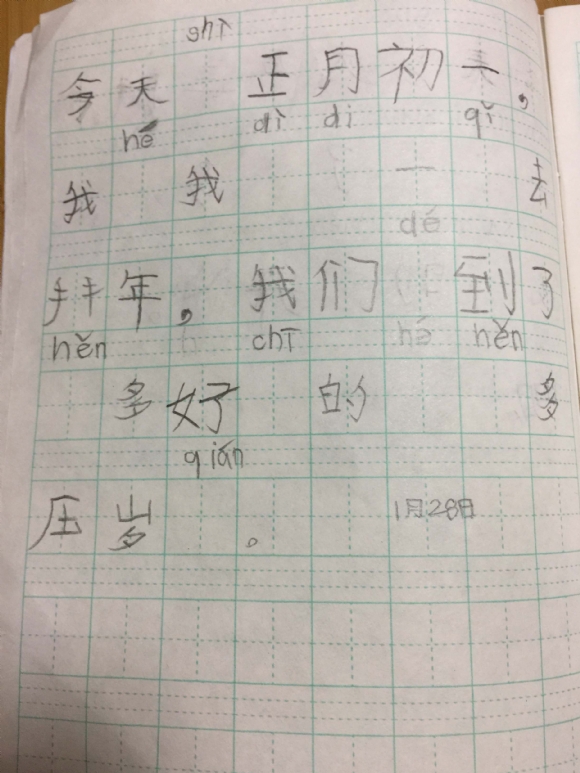 shī
今天 正月初一，
hé dì di qǐ
我 我 一 去
dé
拜年，我们 到了
hěn chī hé hěn
多好 的 多
qián
压岁 。 1月28日